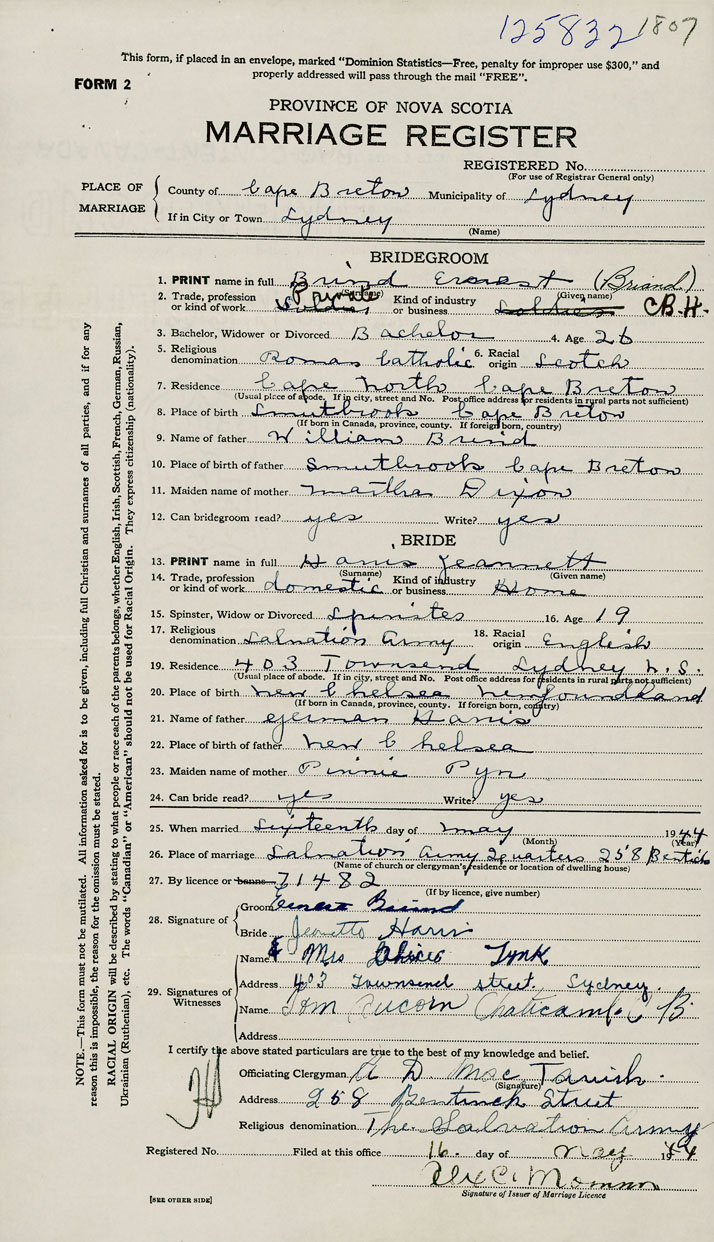 125832 1807
This form, if placed in an envelope, marked "Dominion Statistics—Free, penalty for improper use $300," and
properly addressed will pass through the mail "FREE".
FORM 2
PROVINCE OF NOVA SCOTIA
MARRIAGE REGISTER
REGISTERED No.
(For use of Registrar General only)
PLACE OF MARRIAGE
County of Cape Breton Municipality of Sydney
If in City or Town Sydney
(Name)
BRIDEGROOM
1. PRINT name in full Brind Ernest (Briand)
(Surname) (Given name)
2. Trade, profession or kind of work Private Soldier Kind of industry or business Soldier C.B.H.
3. Bachelor, Widower or Divorced Bachelor 4. Age 26
5. Religious denomination Roman Catholic 6. Racial origin Scotch
7. Residence Cape North Cape Breton
(Usual place of abode. If in city, street and No. Post office address for residents in rural parts not sufficient)
8. Place of birth Smutbrook Cape Breton
(If born in Canada, province, county. If foreign born, country)
9. Name of father William Brind
10. Place of birth of father Smutbrook Cape Breton
11. Maiden name of mother Martha Dixon
12. Can bridegroom read? yes Write? yes
BRIDE
13. PRINT name in full Harris Jeannett
(Surname) (Given name)
14. Trade, profession or kind of work domestic Kind of industry or business Home
15. Spinster, Widow or Divorced Spinster 16. Age 19
17. Religious denomination Salvation Army 18. Racial origin English
19. Residence 403 Townsend Sydney N.S.
(Usual place of abode. If in city, street and No. Post office address for residents in rural parts not sufficient)
20. Place of birth New Chelsea Newfoundland
(If born in Canada, province, county. If foreign born, country)
21. Name of father Harris
22. Place of birth of father New Chelsea
23. Maiden name of mother Pinnie Pyn
24. Can bride read? yes Write? yes
25. When married Sixteenth day of May 1944
(Month) (Year)
26. Place of marriage Salvation Army Quarters 258
(Name of church or clergyman's residence or location of dwelling house)
27. By licence or banns 71482
(If by licence, give number)
28. Signature of
Groom Ernest Briand
Bride Jeanette Harris
29. Signatures of Witnesses
Name Mrs
Address 403 Townsend street, Sydney.
Name Tom
Address
I certify the above stated particulars are true to the best of my knowledge and belief.
Officiating Clergyman
(Signature)
Address 258 Bentinck Street
Religious denomination The Salvation Army
Registered No. Filed at this office 16. day of May 1944
Signature of Issuer of Marriage Licence
[SEE OTHER SIDE]
NOTE.—This form must not be mutilated. All information asked for is to be given, including full Christian and surnames of all parties, and if for any
reason this is impossible, the reason for the omission must be stated.
RACIAL ORIGIN will be described by stating to what people or race each of the parents belongs, whether English, Irish, Scottish, French, German, Russian,
Ukrainian (Ruthenian), etc. The words "Canadian" or "American" should not be used for Racial Origin. They express citizenship (nationality).